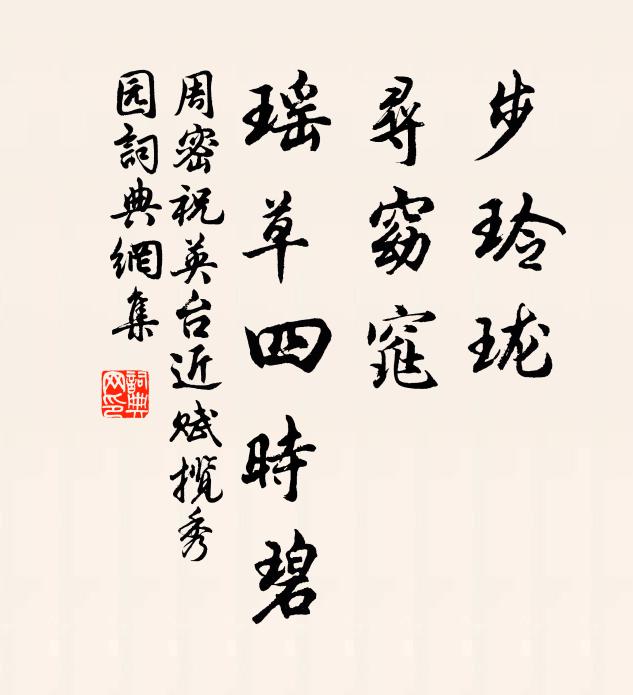 步玲珑
尋窈窕
瑶草四時碧
周密祝英台近赋攬秀
园詞典網集
詞典
网印